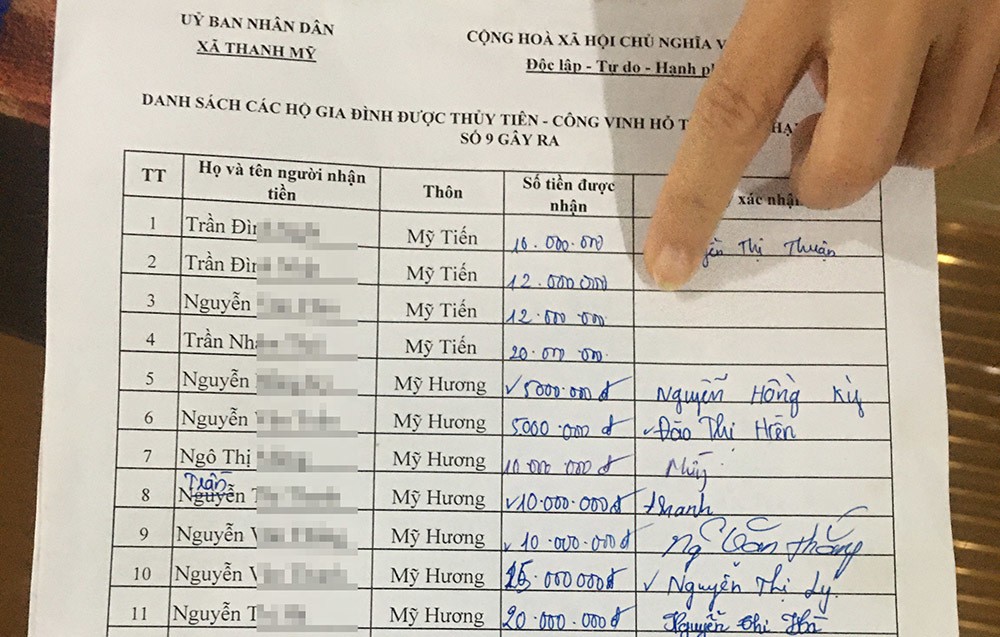 UỶ BAN NHÂN DÂN
XÃ THANH MỸ
CỘNG HOÀ XÃ HỘI CHỦ NGHĨA V
Độc lập - Tự do - Hạnh ph
DANH SÁCH CÁC HỘ GIA ĐÌNH ĐƯỢC THỦY TIÊN - CÔNG VINH HỎ T
SỐ 9 GÂY RA
TT Họ và tên người nhận tiền Thôn Số tiền được nhận xác nhận
1 Trần Đìn Mỹ Tiến 10.000.000 Thị Thuận
2 Trần Đìn Mỹ Tiến 12.000.000
3 Nguyễn Mỹ Tiến 12.000.000
4 Trần Nhâ Mỹ Tiến 20.000.000
5 Nguyễn Mỹ Hương 5000.000đ Nguyễn Hồng Kỳ
6 Nguyễn Mỹ Hương 5000.000đ Đào Thị Hiền
7 Ngô Thị Mỹ Hương 10 000 000đ
Trần
8 Nguyễn T Mỹ Hương 10.000.000đ thanh
9 Nguyễn V Mỹ Hương 10.000.000đ Ng Văn thắng
10 Nguyễn V Mỹ Hương 25.000000đ Nguyễn Thị Lý
11 Nguyễn T Mỹ Hương 20.000.000đ Nguyễn thị Hà